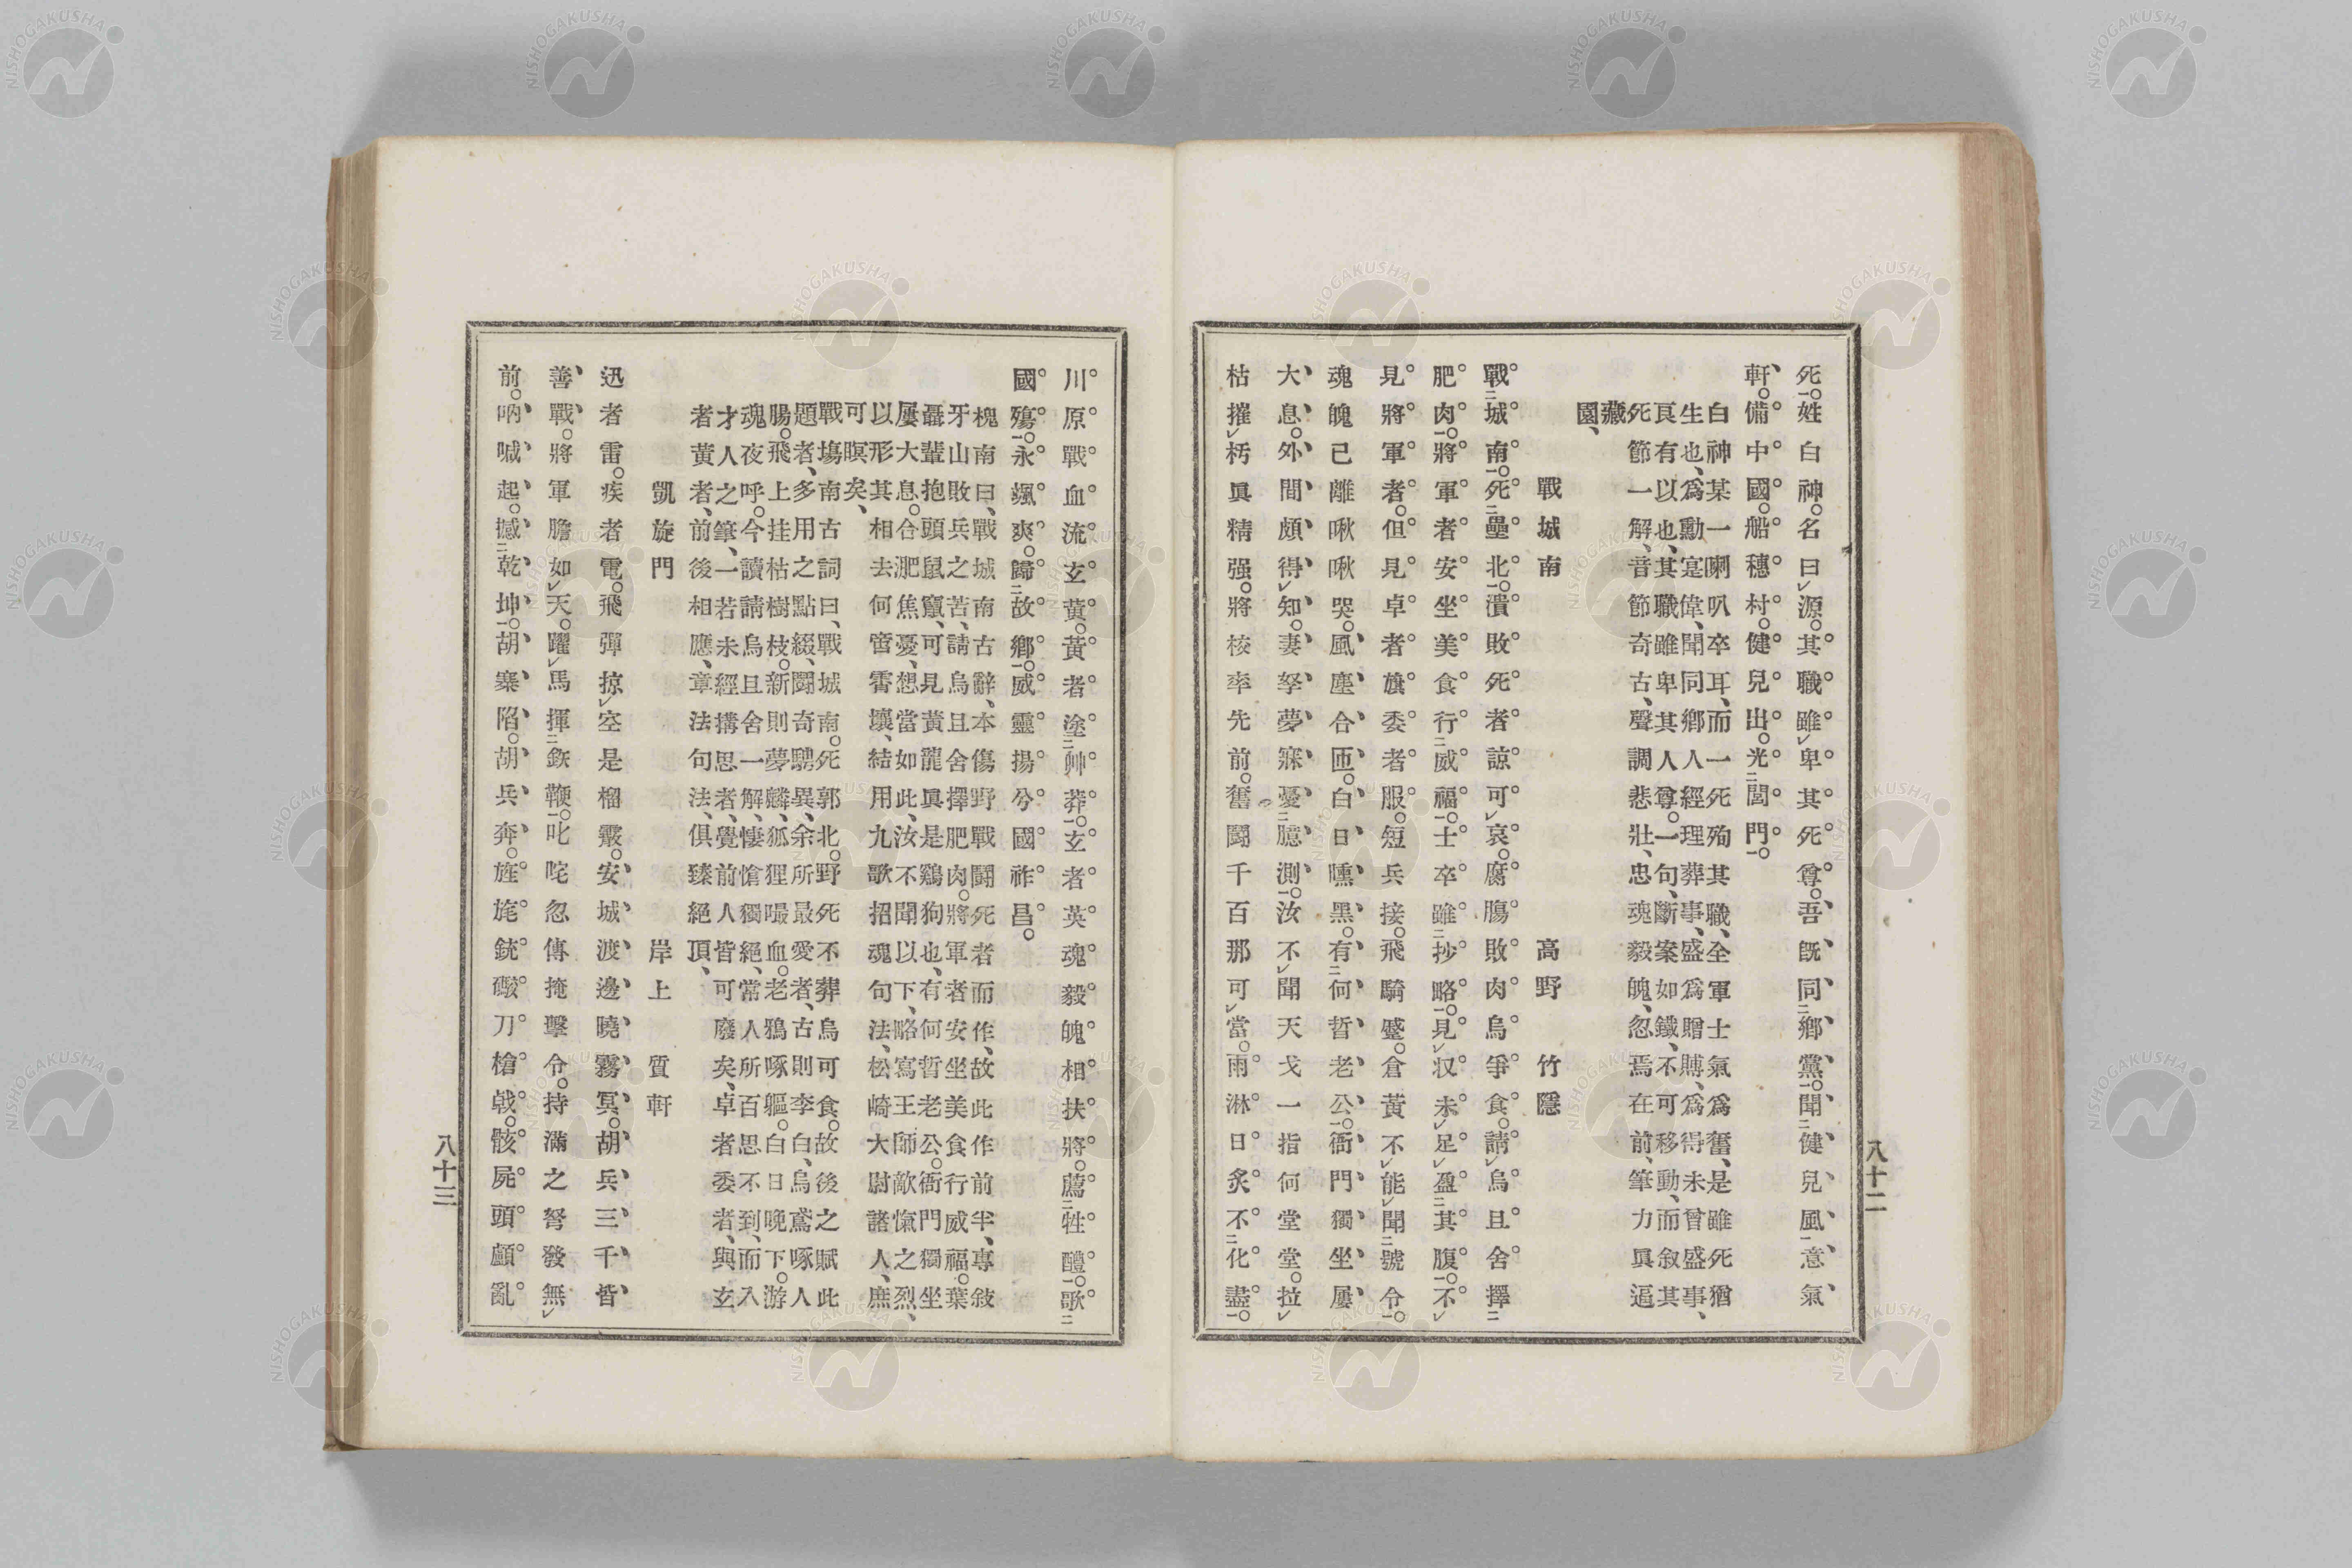 死。姓白神。名曰源。其職雖卑其死尊。吾既同鄉黨。聞健兒風意氣
軒。備中國。船穗村。健兒出。光閭門。
白神某一喇叭卒耳、而一死殉其職、全軍士氣爲奮、是雖死猶
生也、爲勳寔偉、聞同鄉人經理葬事、盛爲贈賻、爲得未曾盛事、
㐮有以也、其職雖卑其人尊。一句、斷案如鐵、不可移動、而敍其
死節一解、音節奇古、聲調悲壯、忠魂毅魄、忽焉在前、筆力眞逼
藏園、
戰城南 高野竹隱
戰城南。死壘北。潰敗死者諒可哀。腐腸敗肉烏爭食。請烏且舍擇
肥肉。將軍者安坐美食行威福。士卒雖抄略。見収未足盈其腹。不
見將軍者。但見卓者旗委者服。短兵接。飛騎蹙。倉黃不能聞號令。
魂魄已離啾啾哭。風塵合匝。白日曛黑。有何晢老公。衙門獨坐屢
大息。外間頗得知。妻孥夢寐憂臆測。汝不聞天戈一指何堂堂。拉
枯摧朽眞精强。將校率先前。奮鬪千百那可當。雨淋日炙不化盡。
川原戰血流玄黃。黃者塗艸莽。玄者英魂毅魄相扶將。薦牲醴。歌
國殤。永颯爽。歸故鄉。威靈揚兮國祚昌。
槐南曰、戰城南古辭、本傷野戰鬪死者而作、故此作前半、專敍
牙山敗兵之苦、請烏且舍擇肥肉。將軍者安坐美食行威福。葉
聶輩抱頭鼠竄、可見黃龍眞是鷄狗也、有何晢老公。衙門獨坐
屢大息。合淝焦憂、想當如此、汝不聞以下、略寫王師敵愾之烈、
以形其相去何啻霄壤、結用九歌招魂句法、松崎大尉諸人、庶
可瞑矣、
戰塲南古詞曰、戰城南。死郭北。野死不葬烏可食。故後之賦此
題者、多用之點綴、鬪奇騁異、余所最愛者、古則李白、烏鳶啄人
腸。飛上挂枯樹枝。新則夢麟、狐狸嘬血。老鴉啄軀。白日晚下。游
魂夜呼。今讀請烏且舍一解、悽愴獨絕、常人所百思不到、而入
才人之筆、一若未經搆思者、覺前人皆可廢矣、卓者委者、與玄
者黃者、前後相應、章法句法、俱臻絕頂、
凱旋門 岸上質軒
迅者雷。疾者電。飛彈掠空是榴霰。安城渡邊曉霧冥。胡兵三千皆
善戰。將軍膽如天。躍馬揮鉄鞭。叱咤忽傳掩擊令。持滿之弩發無
前。吶喊起。撼乾坤。胡寨陷。胡兵奔。旌旄銃礮刀槍戟。骸屍頭顱亂
八十二
八十三